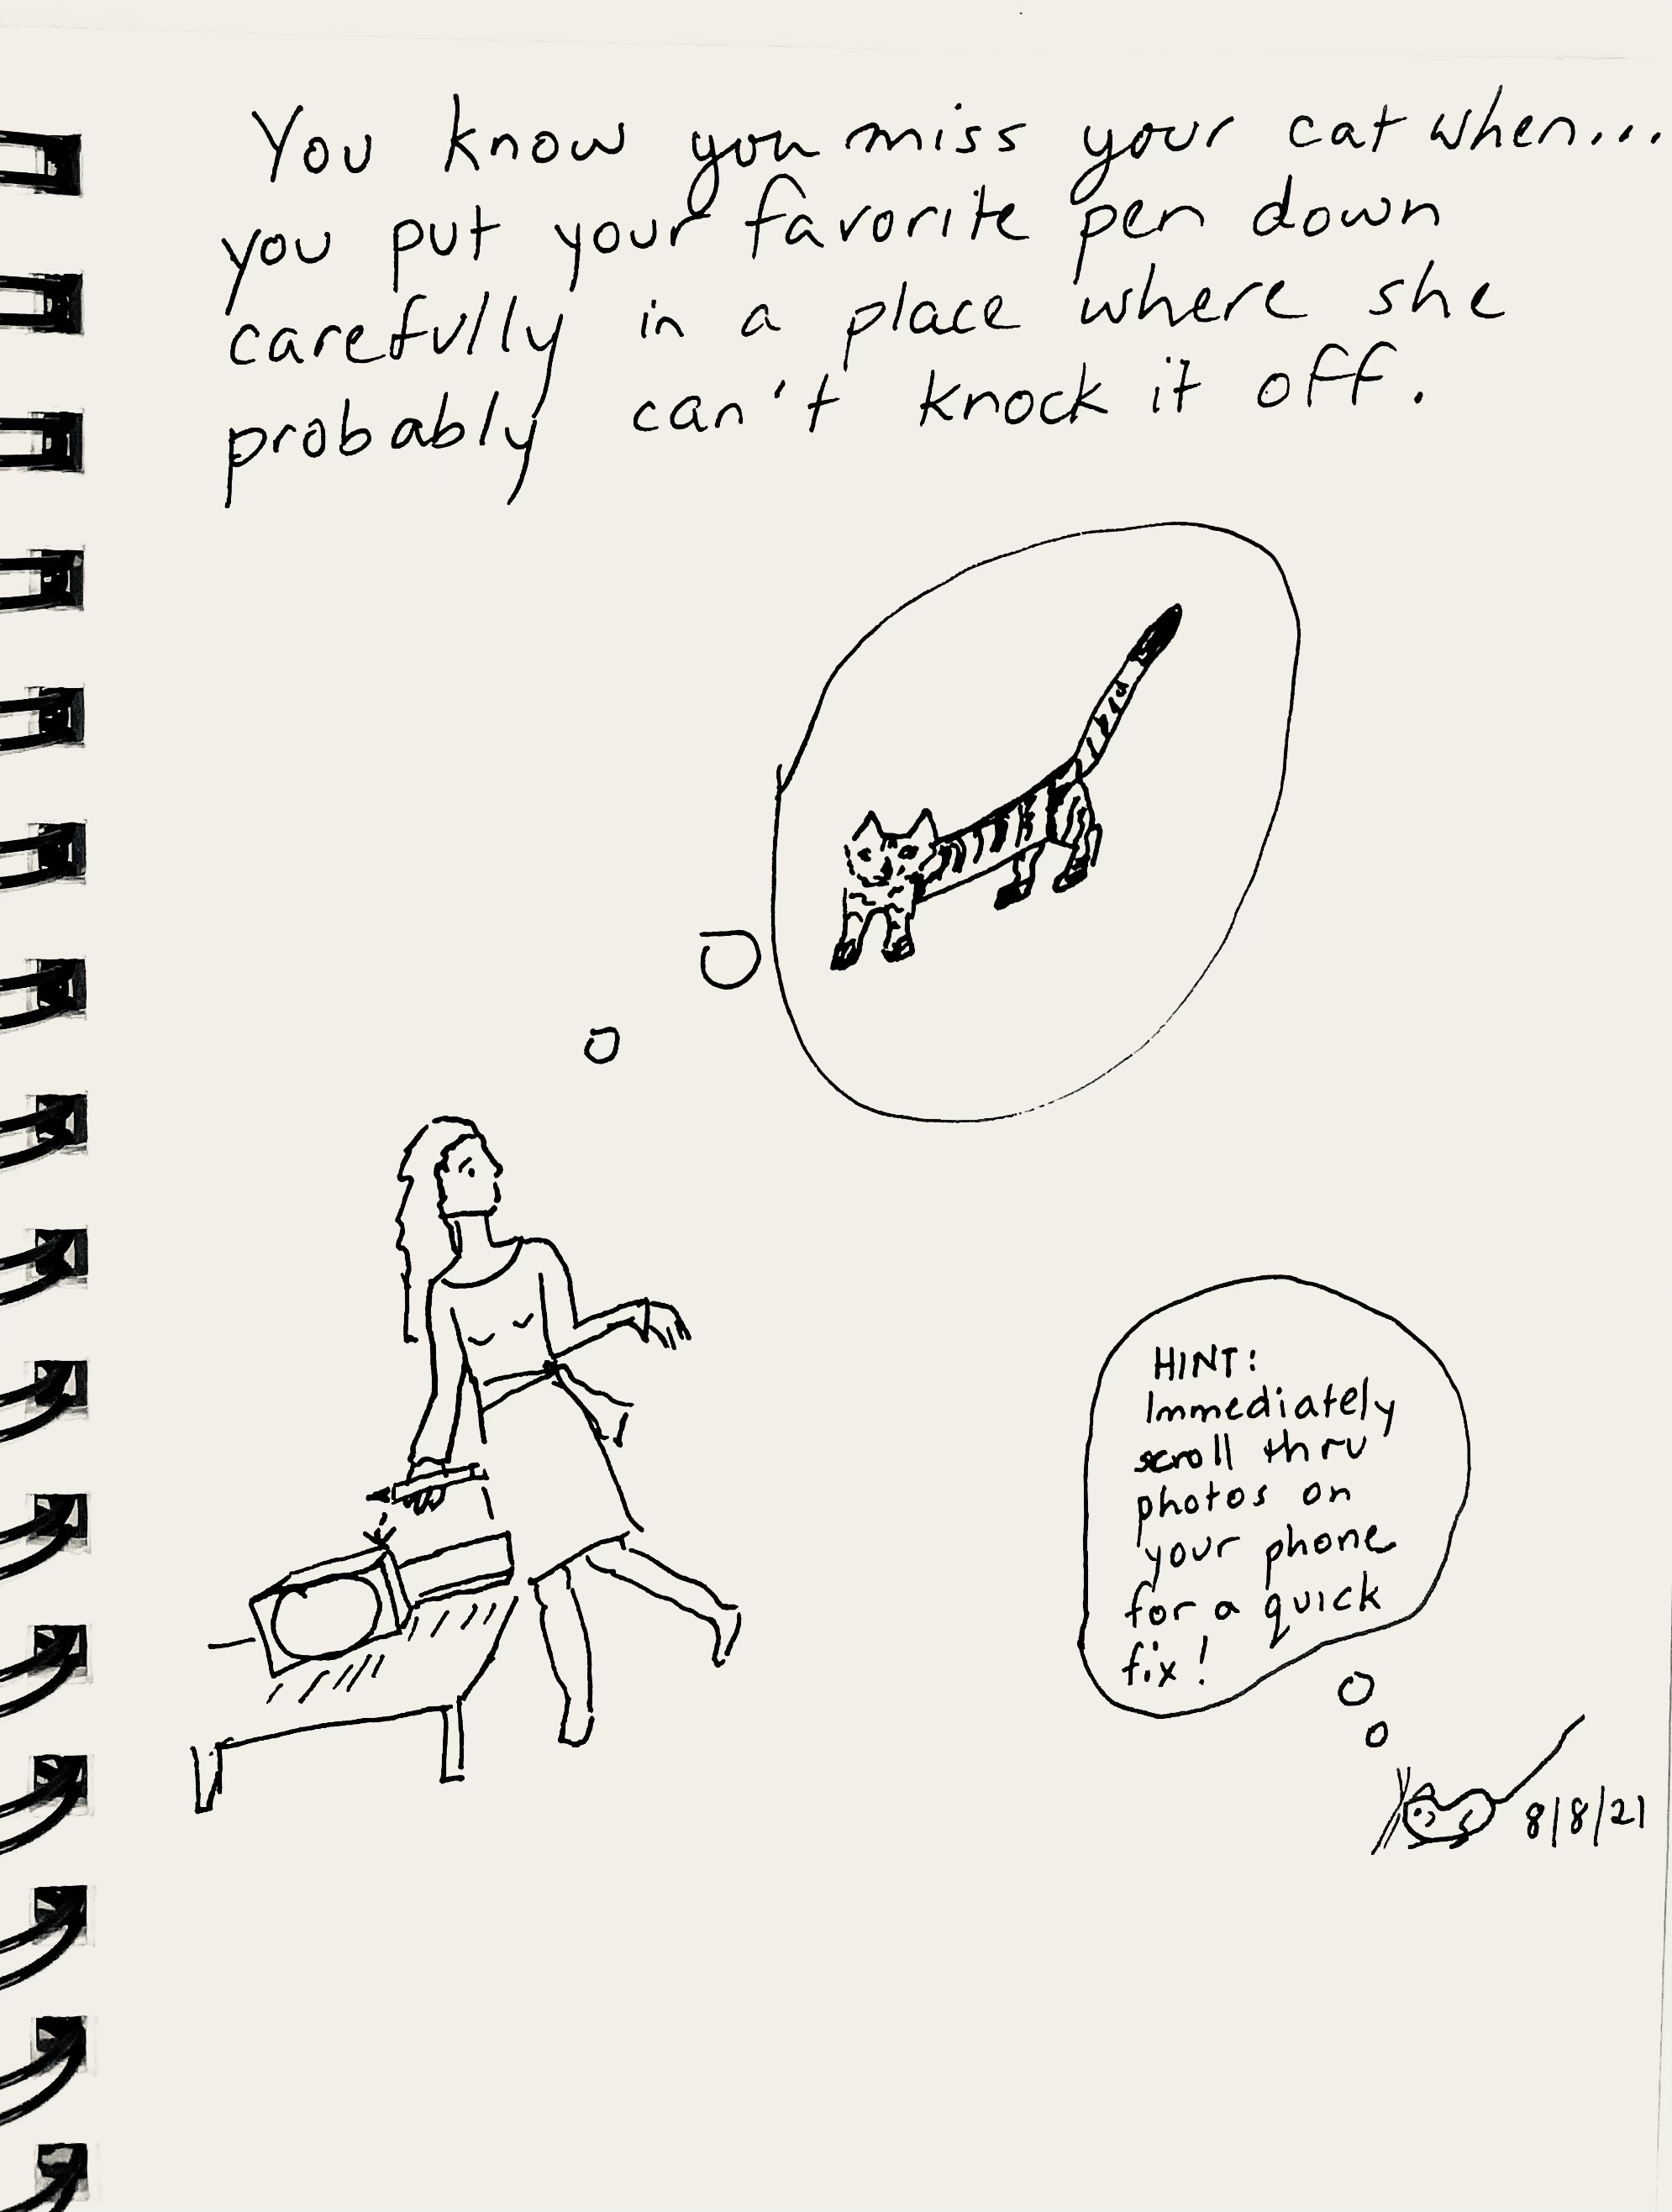 You know you miss your cat when...
you put your favorite pen down
carefully in a place where she
probably can't knock it off.
HINT:
Immediately
scroll thru
photos on
your phone
for a quick
fix!
8/8/21